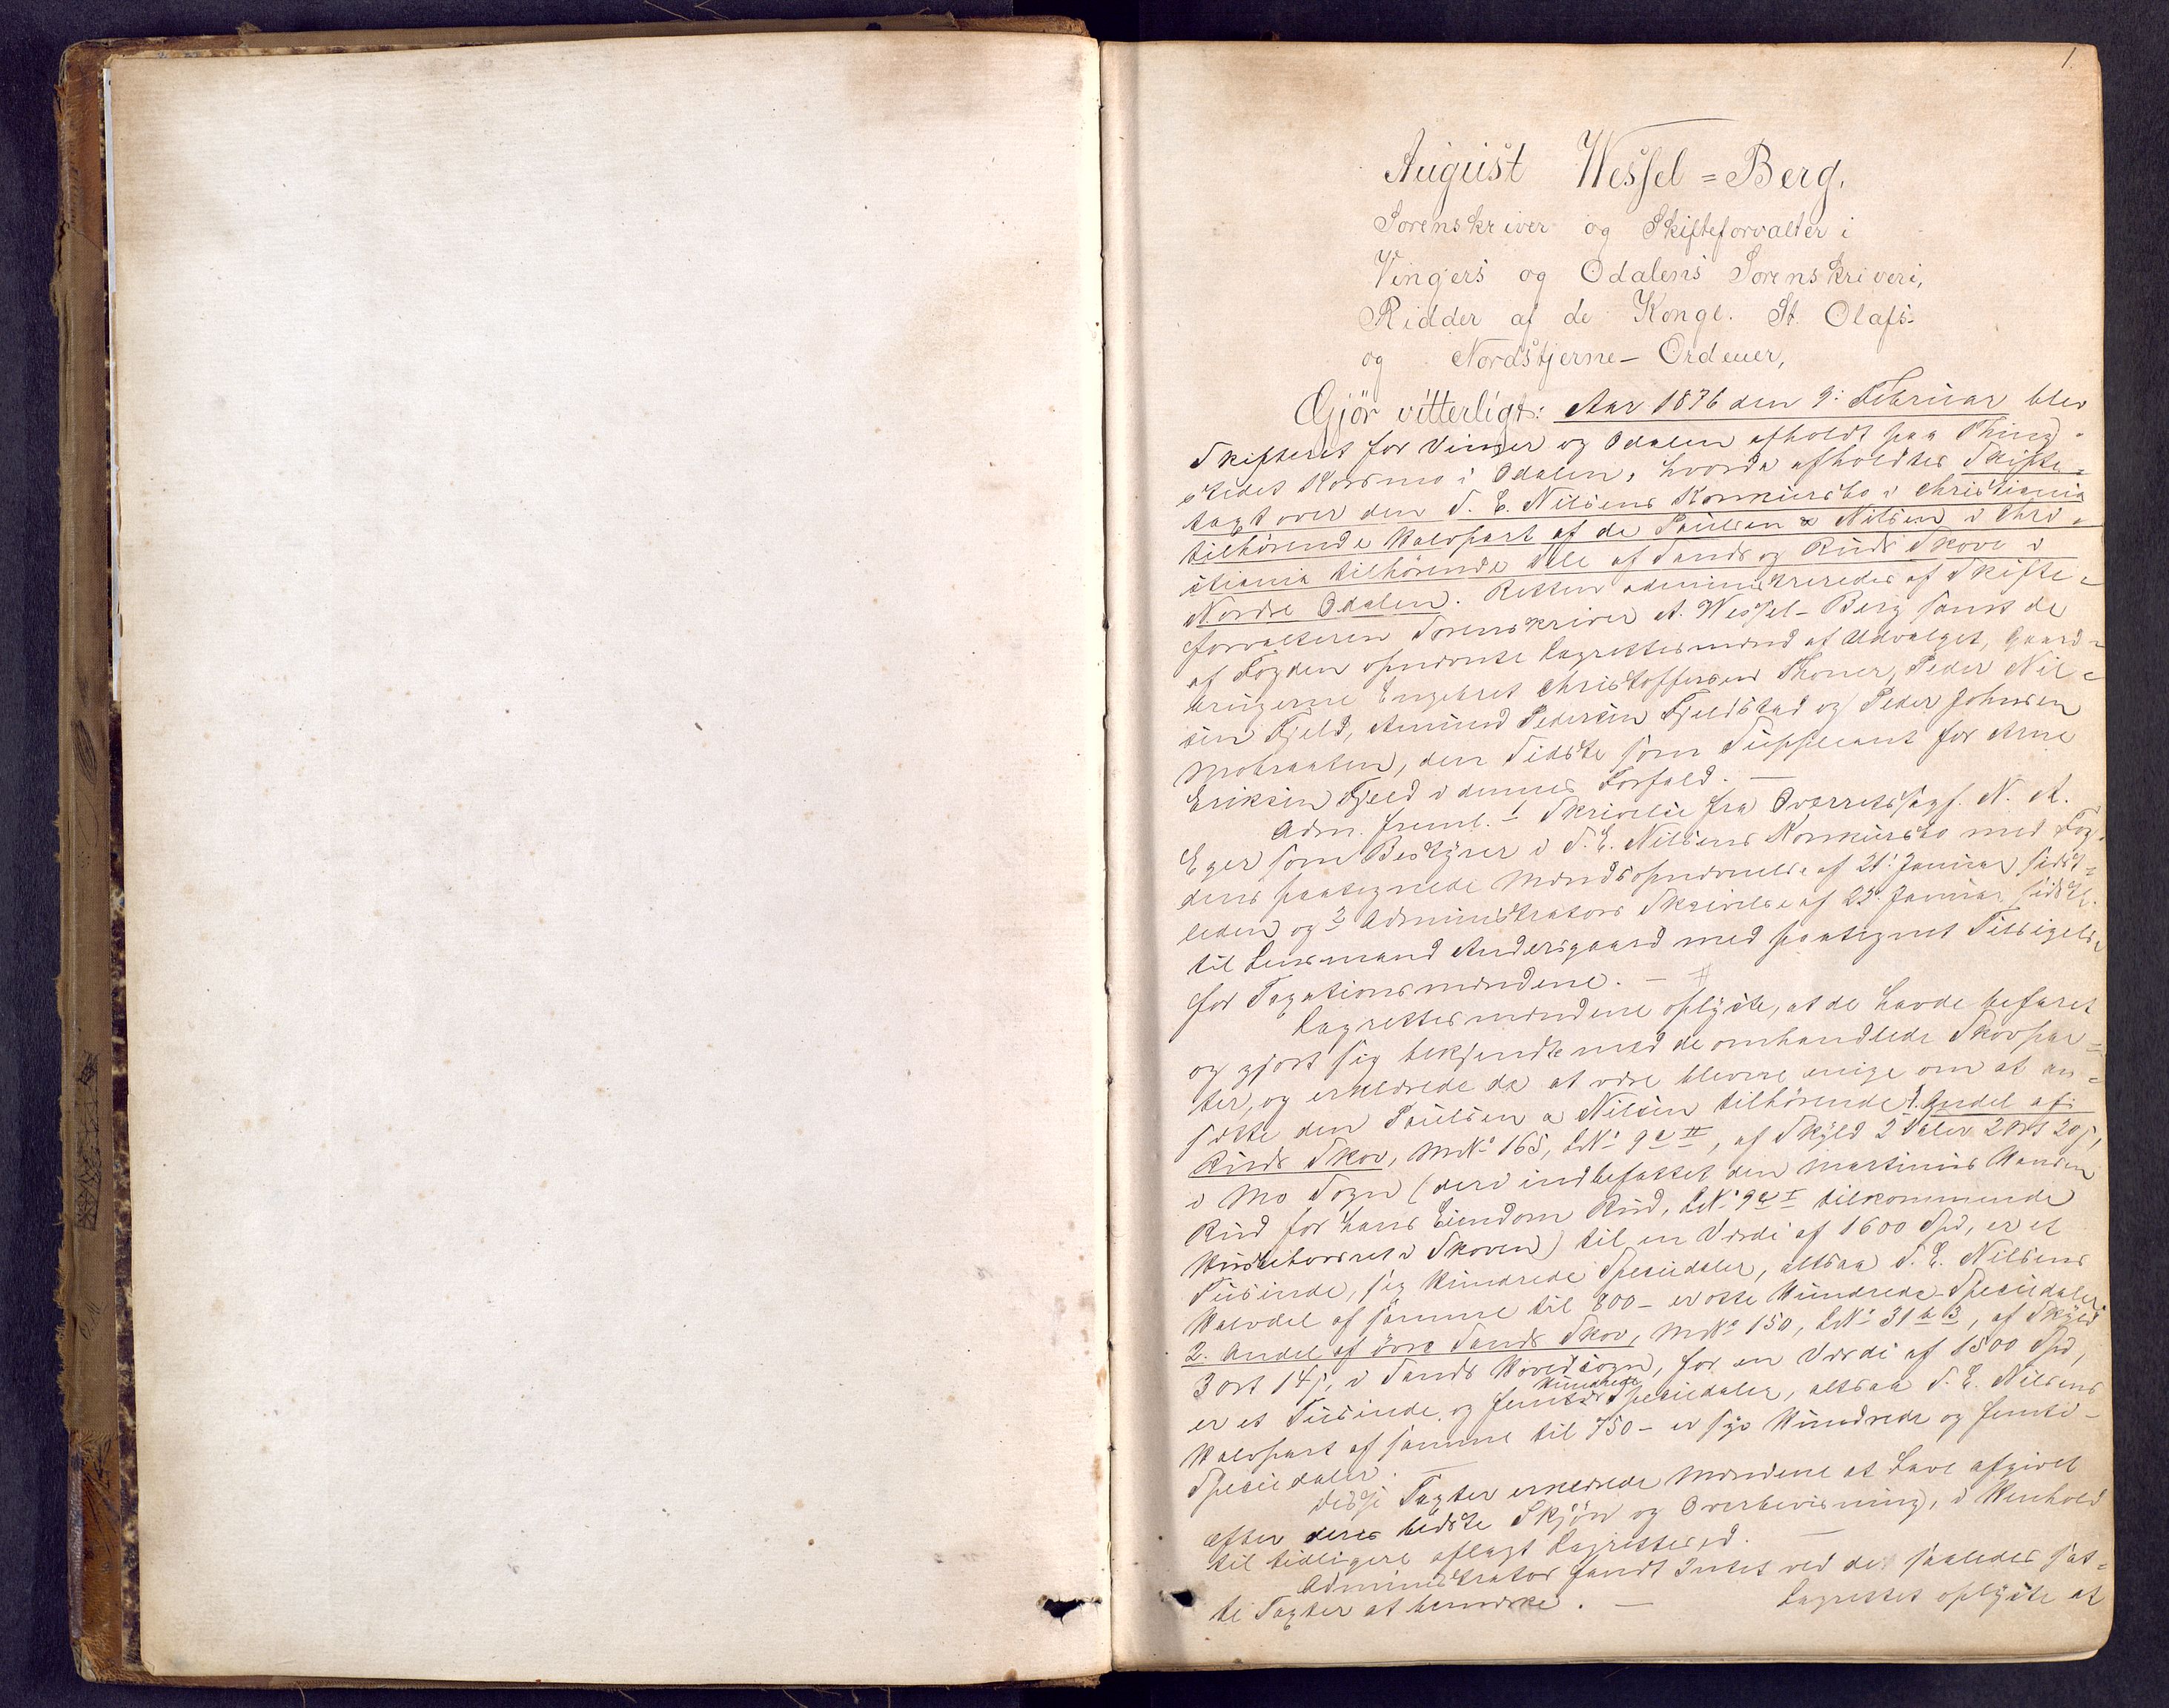 1.
August Wessel=Berg.
Sorenskriver og Skifteforvalter i
Vingers og Odalens Sorenskriveri,
Ridder af de Kongl. St. Olafs-
og Nordstjerne-Ordener,
Gjør vitterligt: Aar 1876 den 9: Februar blev
Skifteret for Vinger og Odalen afholdt paa Thing-
stedet Korsmo i Odalen, hvorda afholdtes Skifte-
taxt over den S. E. Nilsens Konkursbo i Christiania
tilhørende Halvpart af de Paulsen & Nilsen i Chri-
stiania tilhørende Dele af Sands og Ruds Skove i
Nordre Odalen. Retten administreredes af Skifte-
forvalteren Sorenskriver A. Wessel-Berg samt de
af Fogden opnævnte Lagrettesmænd af Udvalget, Gaard-
brugerne Engebret Christoffersen Thoner, Peder Nil-
sen Fjeld, Amund Pedersen Fjeldstad og Peder Johnsen
Mobraaten, den Sidste som Suppleant for Arne
Eriksen Fjeld i dennes Forfald. —
Adm. freml. 1 Skrivelse fra Overretssagf. N. A.
Eger som Bestyrer i S. E. Nilsens Konkursbo med Fog-
dens paategnede Mændsopnævnelse af 21: Januar sidst-
leden og 2 Administrators Skrivelse af 25: Januar sidstl.
til Lensmand Andersgaard med paategnet Tilsigelse
for Taxationsmændene. — #
Lagrettesmændene oplyste, at de havde befaret
og gjort sig bekjendte med de omhandlede Skovpar-
ter, og erklærede de at være blevne enige om at an-
sætte den Paulsen & Nilsen tilhørende 1. Andel af
Ruds Skov, MN° 165, LN° 9 a II, af Skyld 2 Daler 2 Ort 20 s,
i Mo Sogn (deri indbefattet den Martinus Hansen
Rud for hans Eiendom Rud, LN° 9 a I tilkommende
Husbehovsret i Skoven) til en Værdi af 1600 Spd, er et
Tusinde, sex Hundrede Speciedaler, altsaa S. E. Nilsens
Halvdel af samme til 800 - er otte Hundrede - Speciedaler
2. Andel af øvre Sands Skov, MN° 150, LN° 31 b 3, af Skyld
3 ort 14 s, i Sands Hovedsogn, for en Værdi af 1500 Spd,
er et Tusinde og fem Hundrede Speciedaler, altsaa S. E. Nilsens
Halvpart af samme til 750 - er syv Hundrede og femti -
Speciedaler. —
Disse Taxter erklærede Mændene at have afgivet
efter deres bedste Skjøn og Overbevisning, i Henhold
til tidligere aflagt Lagrettesed. —
Administrator fandt Intet ved de saaledes sat-
te Taxter at bemærke. — Lagrettet oplyste at